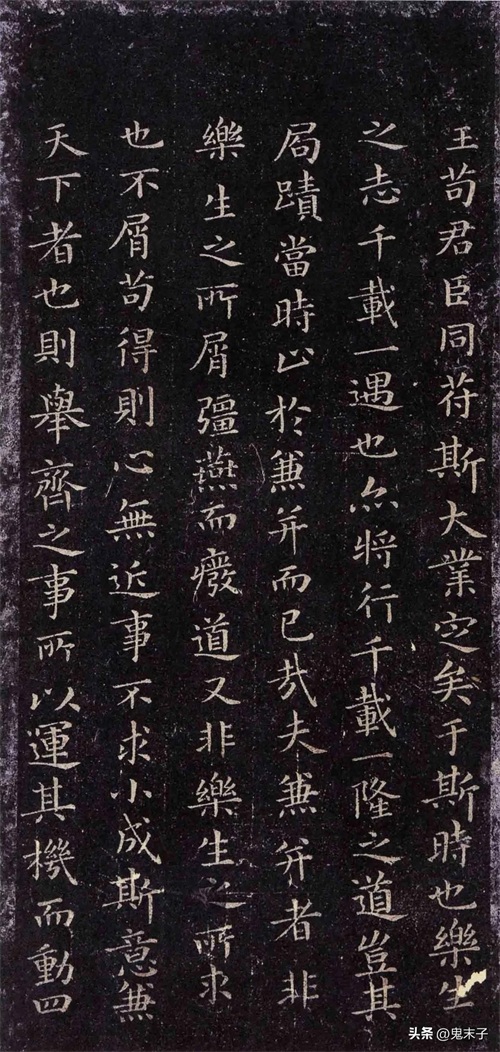 王苟君臣同苻斯大業定矣于斯時也樂生
之志千載一遇也亦將行千載一隆之道豈其
局蹟當時止於兼并而已哉夫兼并者非
樂生之所屑彊燕而癈道又非樂生之所求
也不屑苟得則心無近事不求小成斯意兼
天下者也則舉齊之事所以運其機而動四
头条 @鬼末子